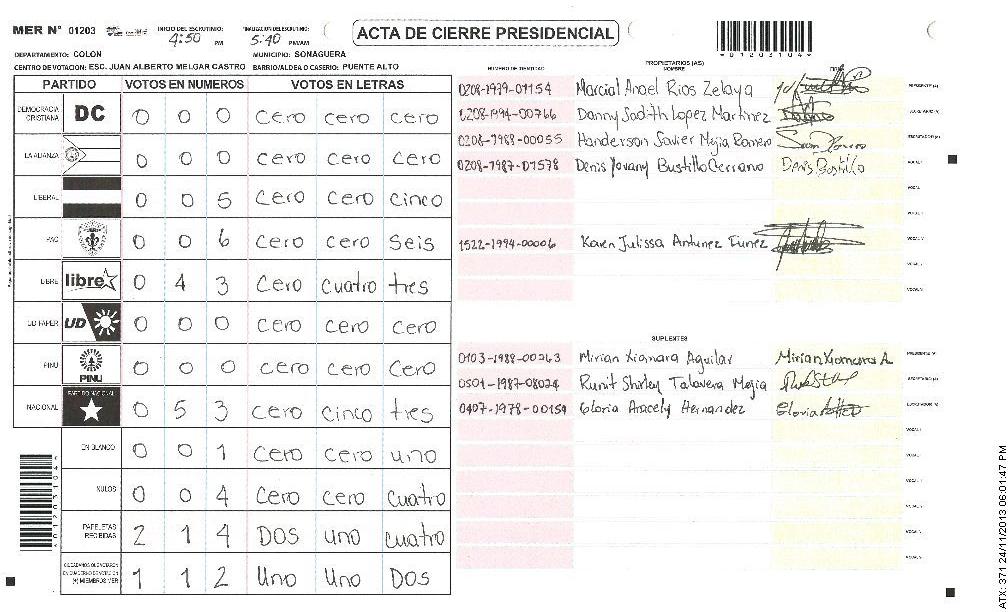 MER N° 01203 INICIO DEL ESCRUTINIO: 4:50 PM FINALIZACION DEL ESCRUTINIO: 5:40 PM/AM ACTA DE CIERRE PRESIDENCIAL
*01203104*
DEPARTAMENTO: COLON MUNICIPIO: SONAGUERA
CENTRO DE VOTACION: ESC. JUAN ALBERTO MELGAR CASTRO BARRIO/ALDEA O CASERIO: PUENTE ALTO
PARTIDO VOTOS EN NUMEROS VOTOS EN LETRAS
DEMOCRACIA CRISTIANA DC 0 0 0 Cero cero cero
LA ALIANZA 0 0 0 Cero Cero Cero
LIBERAL 0 0 5 Cero cero cinco
PAC 0 0 6 Cero cero Seis
LIBRE libre 0 4 3 Cero cuatro tres
UD FAPER UD 0 0 0 Cero cero cero
PINU PINU 0 0 0 cero cero Cero
NACIONAL PARTIDO NACIONAL 0 5 3 Cero cinco tres
EN BLANCO 0 0 1 Cero cero uno
NULOS 0 0 4 Cero cero cuatro
PAPELETAS RECIBIDAS 2 1 4 DOS uno cuatro
1 1 2 Uno Uno DOS
NUMERO DE IDENTIDAD PROPIETARIOS (AS) NOMBRE FIRMA
0208-1979-01154 Marcial Anoel Rios Zelaya PRESIDENTE (A)
0208-1994-00766 Danny Sadith Lopez Martinez SECRETARIO (A)
0208-1988-00055 Handerson Javier Mejia Romero ESCRUTADOR (A)
0208-1987-01578 Denis Yovany Bustillo Cerrano Denis Bustillo VOCAL I
1522-1994-00006 Karen Julissa Antunez Funez VOCAL
SUPLENTES
0103-1988-00263 Mirian Xiomara Aguilar Mirian Xiomara A. PRESIDENTE (A)
0501-1987-08024 Runit Shirley Talavera Mejia SECRETARIO (A)
0407-1978-00154 Gloria Aracely Hernandez Gloria ESCRUTADOR (A)
ATX: 371 24/11/2013 06:01:47 PM